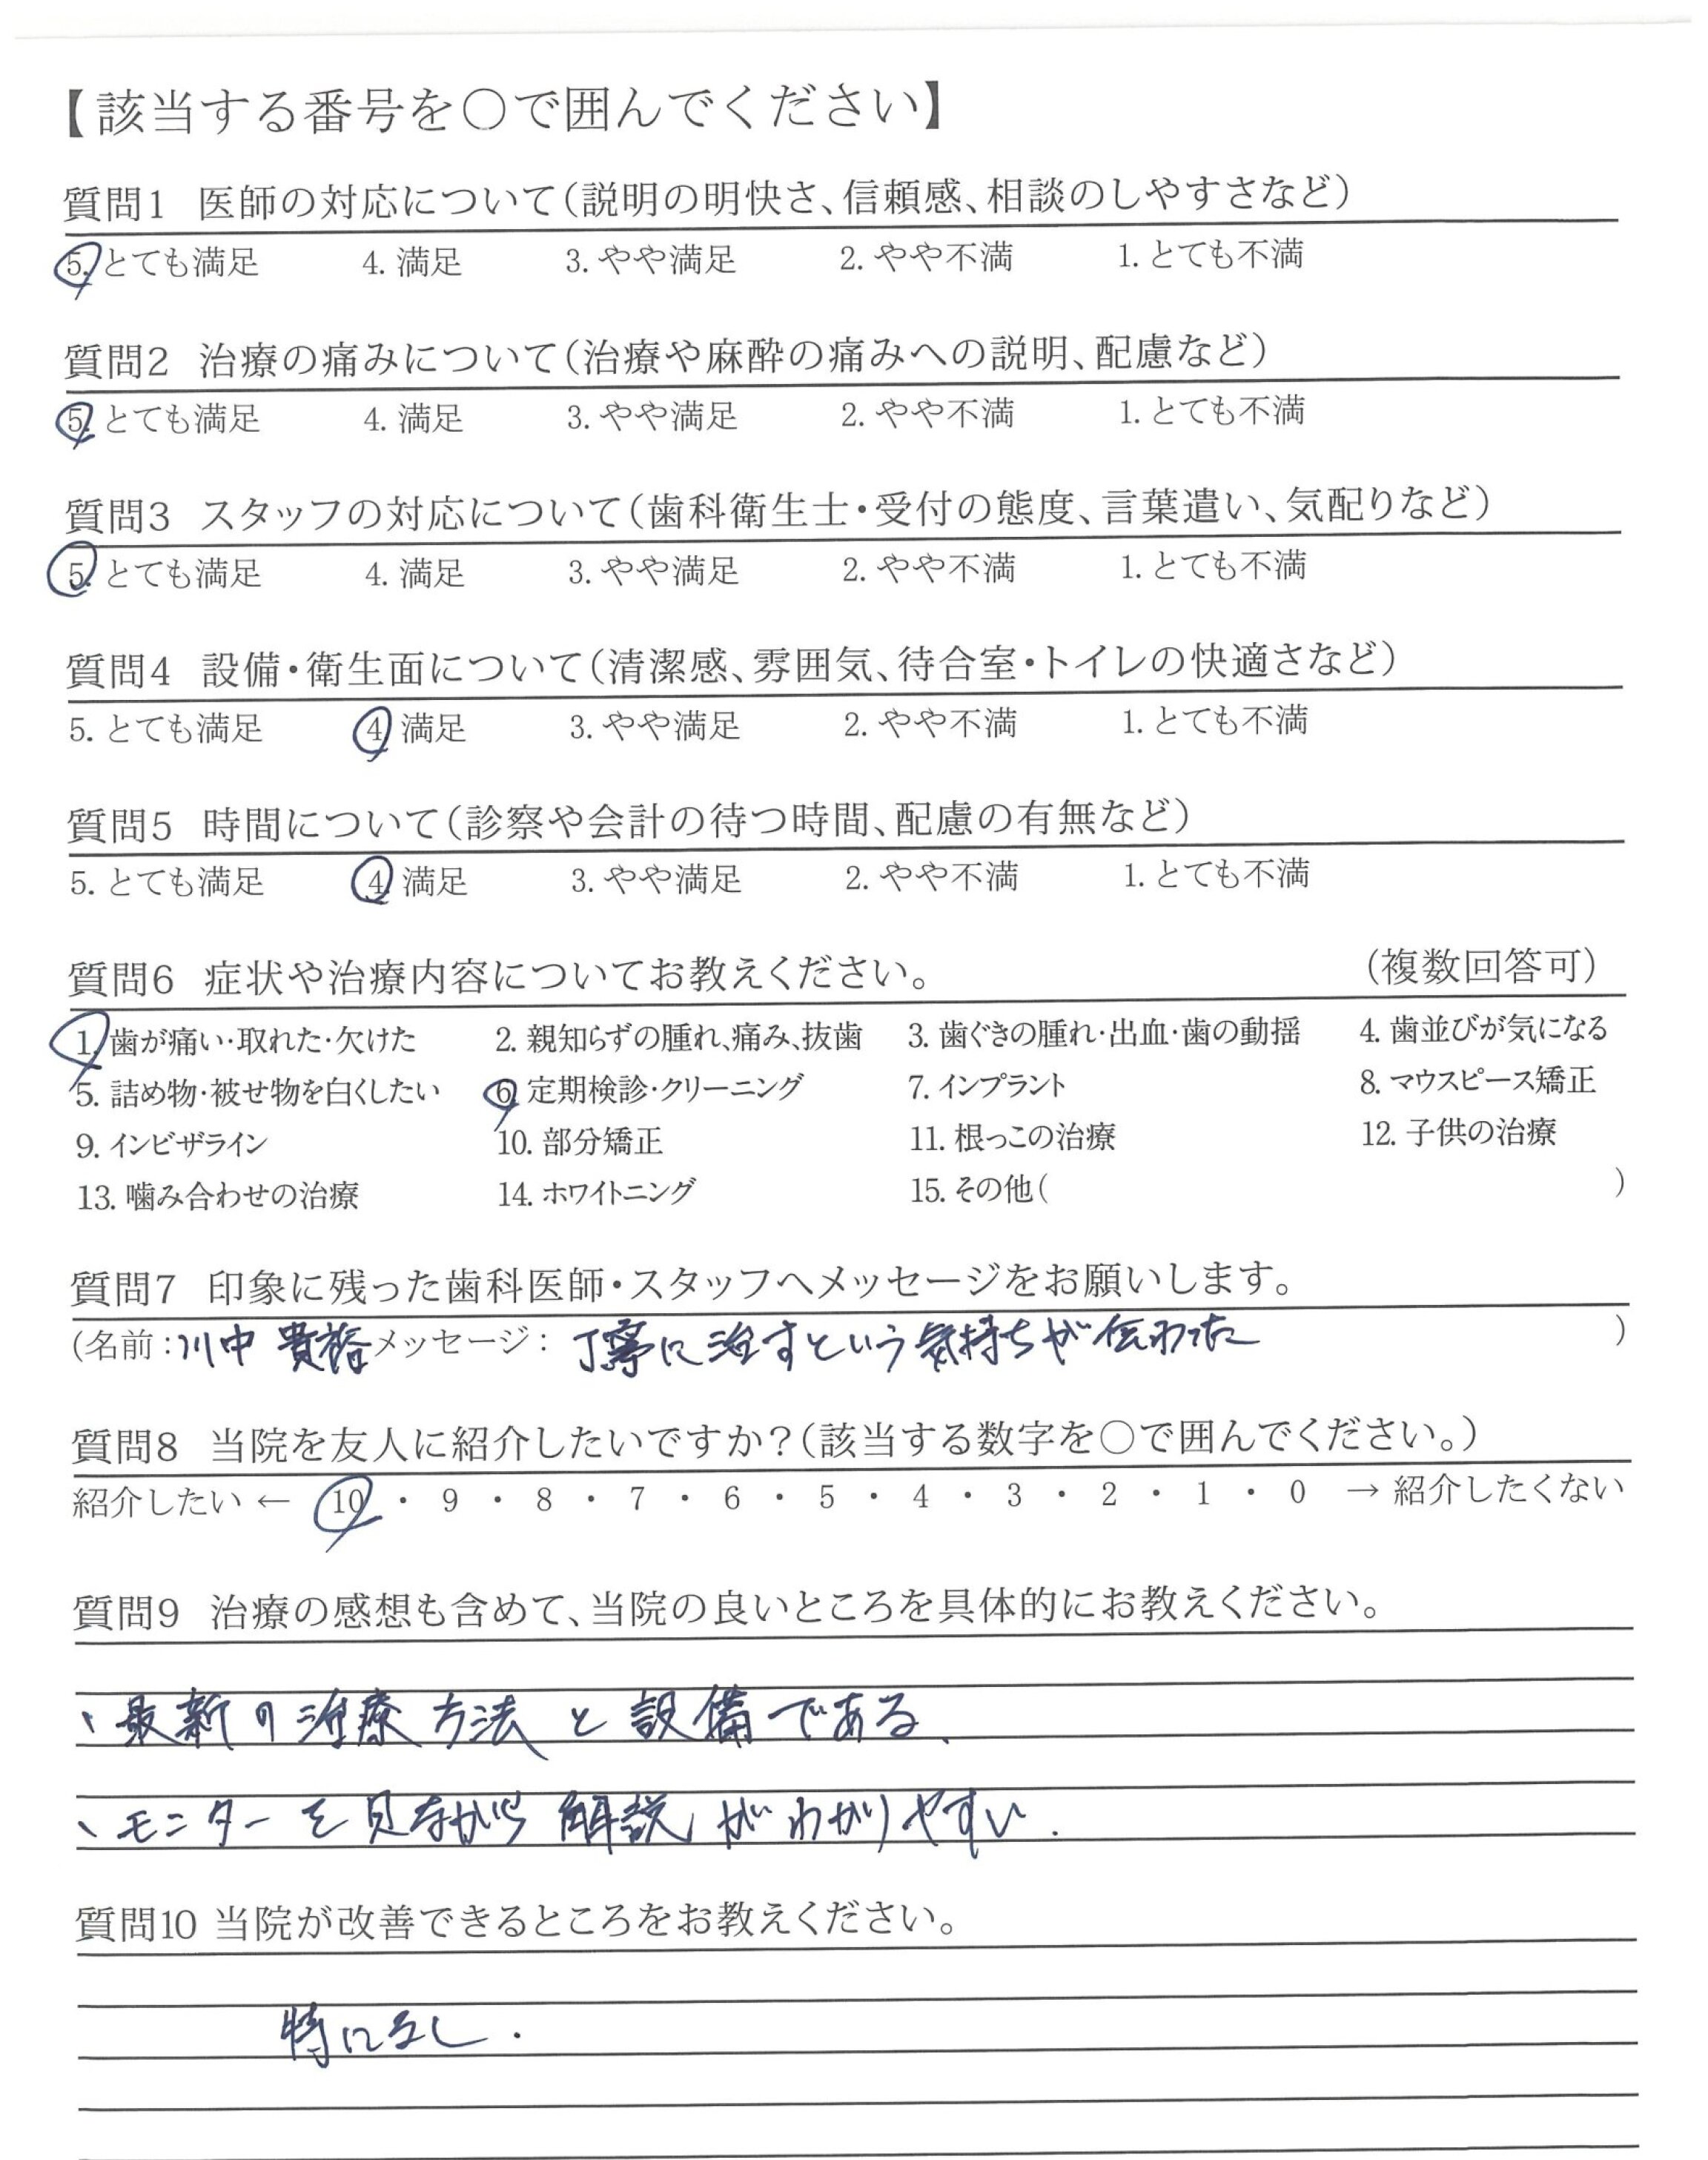 【該当する番号を○で囲んでください】
質問1 医師の対応について(説明の明快さ、信頼感、相談のしやすさなど)
5. とても満足 4. 満足 3. やや満足 2. やや不満 1. とても不満
質問2 治療の痛みについて(治療や麻酔の痛みへの説明、配慮など)
5. とても満足 4. 満足 3. やや満足 2. やや不満 1. とても不満
質問3 スタッフの対応について(歯科衛生士・受付の態度、言葉遣い、気配りなど)
5. とても満足 4. 満足 3. やや満足 2. やや不満 1. とても不満
質問4 設備・衛生面について(清潔感、雰囲気、待合室・トイレの快適さなど)
5. とても満足 4. 満足 3. やや満足 2. やや不満 1. とても不満
質問5 時間について(診察や会計の待つ時間、配慮の有無など)
5. とても満足 4. 満足 3. やや満足 2. やや不満 1. とても不満
質問6 症状や治療内容についてお教えください。 (複数回答可)
1. 歯が痛い・取れた・欠けた 2. 親知らずの腫れ、痛み、抜歯 3. 歯ぐきの腫れ・出血・歯の動揺 4. 歯並びが気になる
5. 詰め物・被せ物を白くしたい 6. 定期検診・クリーニング 7. インプラント 8. マウスピース矯正
9. インビザライン 10. 部分矯正 11. 根っこの治療 12. 子供の治療
13. 噛み合わせの治療 14. ホワイトニング 15. その他( )
質問7 印象に残った歯科医師・スタッフへメッセージをお願いします。
(名前:川中 メッセージ: 丁寧に治すという気持ちが伝わった )
質問8 当院を友人に紹介したいですか?(該当する数字を○で囲んでください。)
紹介したい ← 10 ・ 9 ・ 8 ・ 7 ・ 6 ・ 5 ・ 4 ・ 3 ・ 2 ・ 1 ・ 0 → 紹介したくない
質問9 治療の感想も含めて、当院の良いところを具体的にお教えください。
、最新の治療方法と設備である、
、モニターを見ながら解説がわかりやすい.
質問10 当院が改善できるところをお教えください。
特になし.